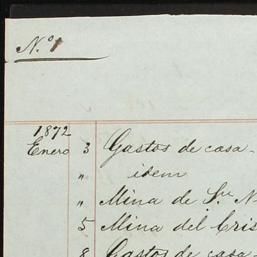 N.º 1
1872
Enero 3 Gastos de casa
" idem
" Mina de Sn. N
5 Mina del Cris
8 Gastos de casa